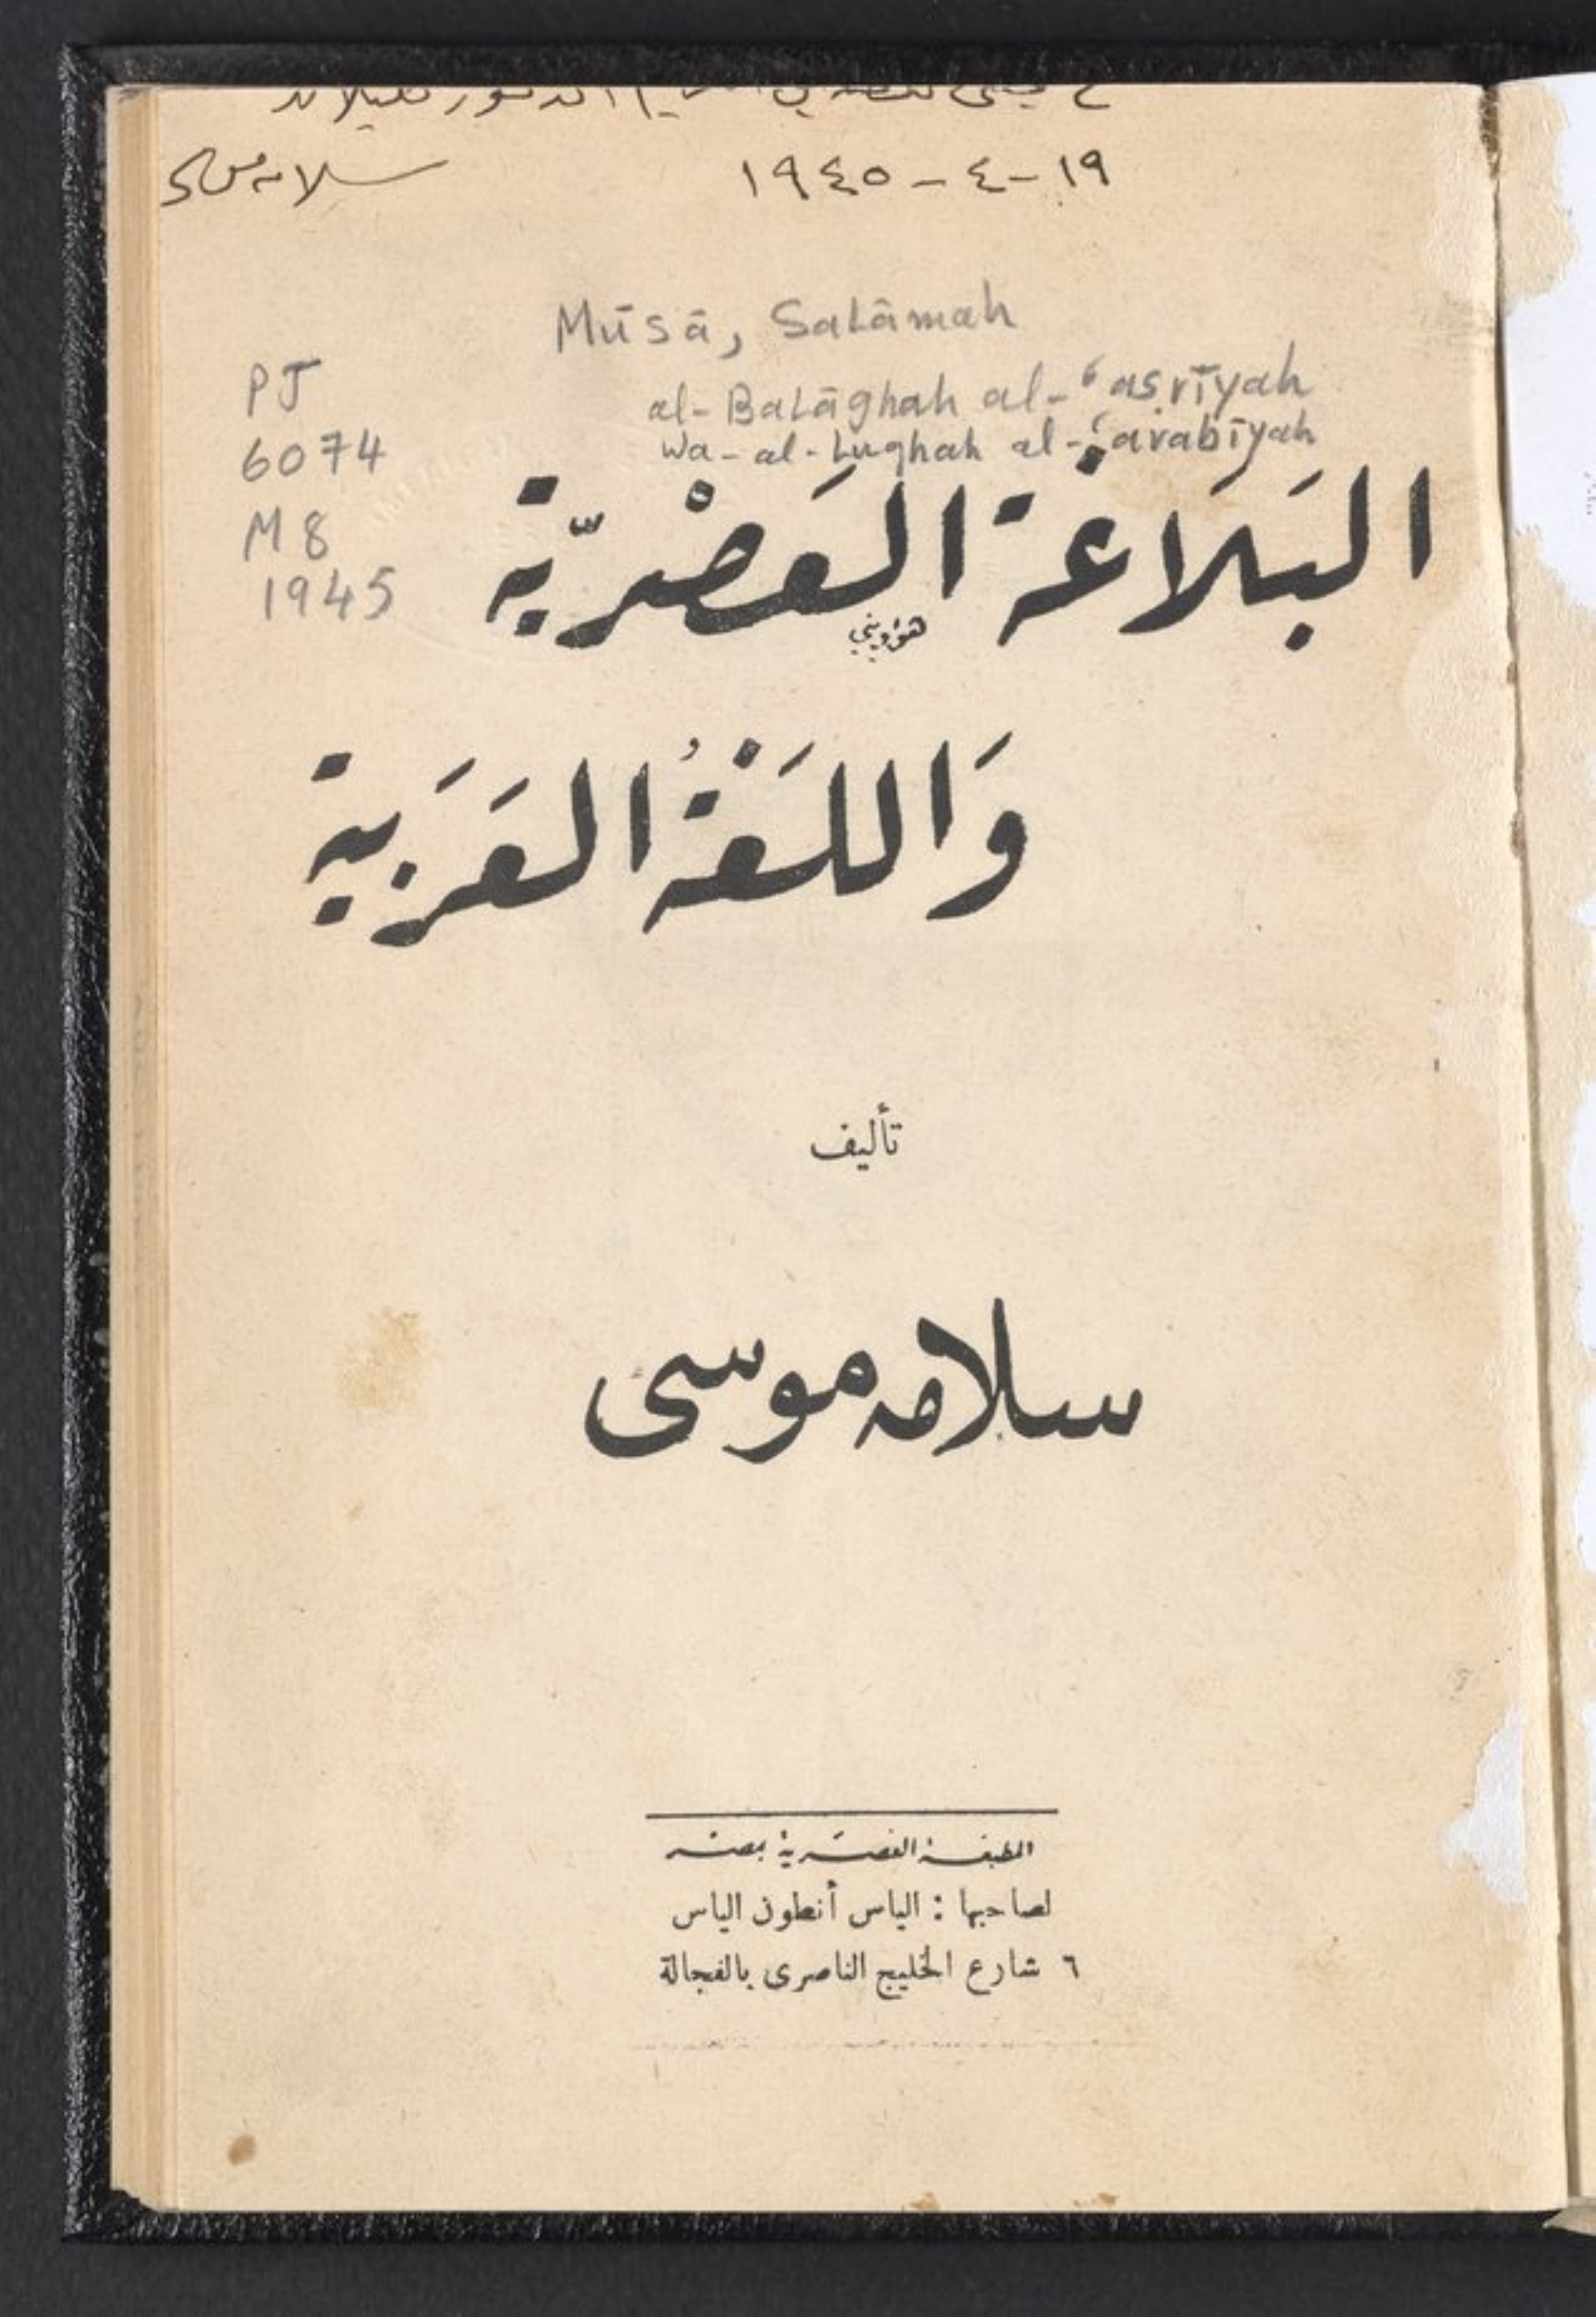 ١٩-٤-١٩٤٥ سلامه موسى
Mūsā, Salāmah
al-Balāghah al-ʻaṣrīyah
wa-al-lughah al-ʻarabīyah
PJ
6074
M8
1945
البَلَاغَة العَصْريّة
وَاللغَةُ العَرَبية
تأليف
سلامه موسى
المطبعة العصرية بمصر
لصاحبها : الياس أنطون الياس
٦ شارع الخليج الناصرى بالفجالة